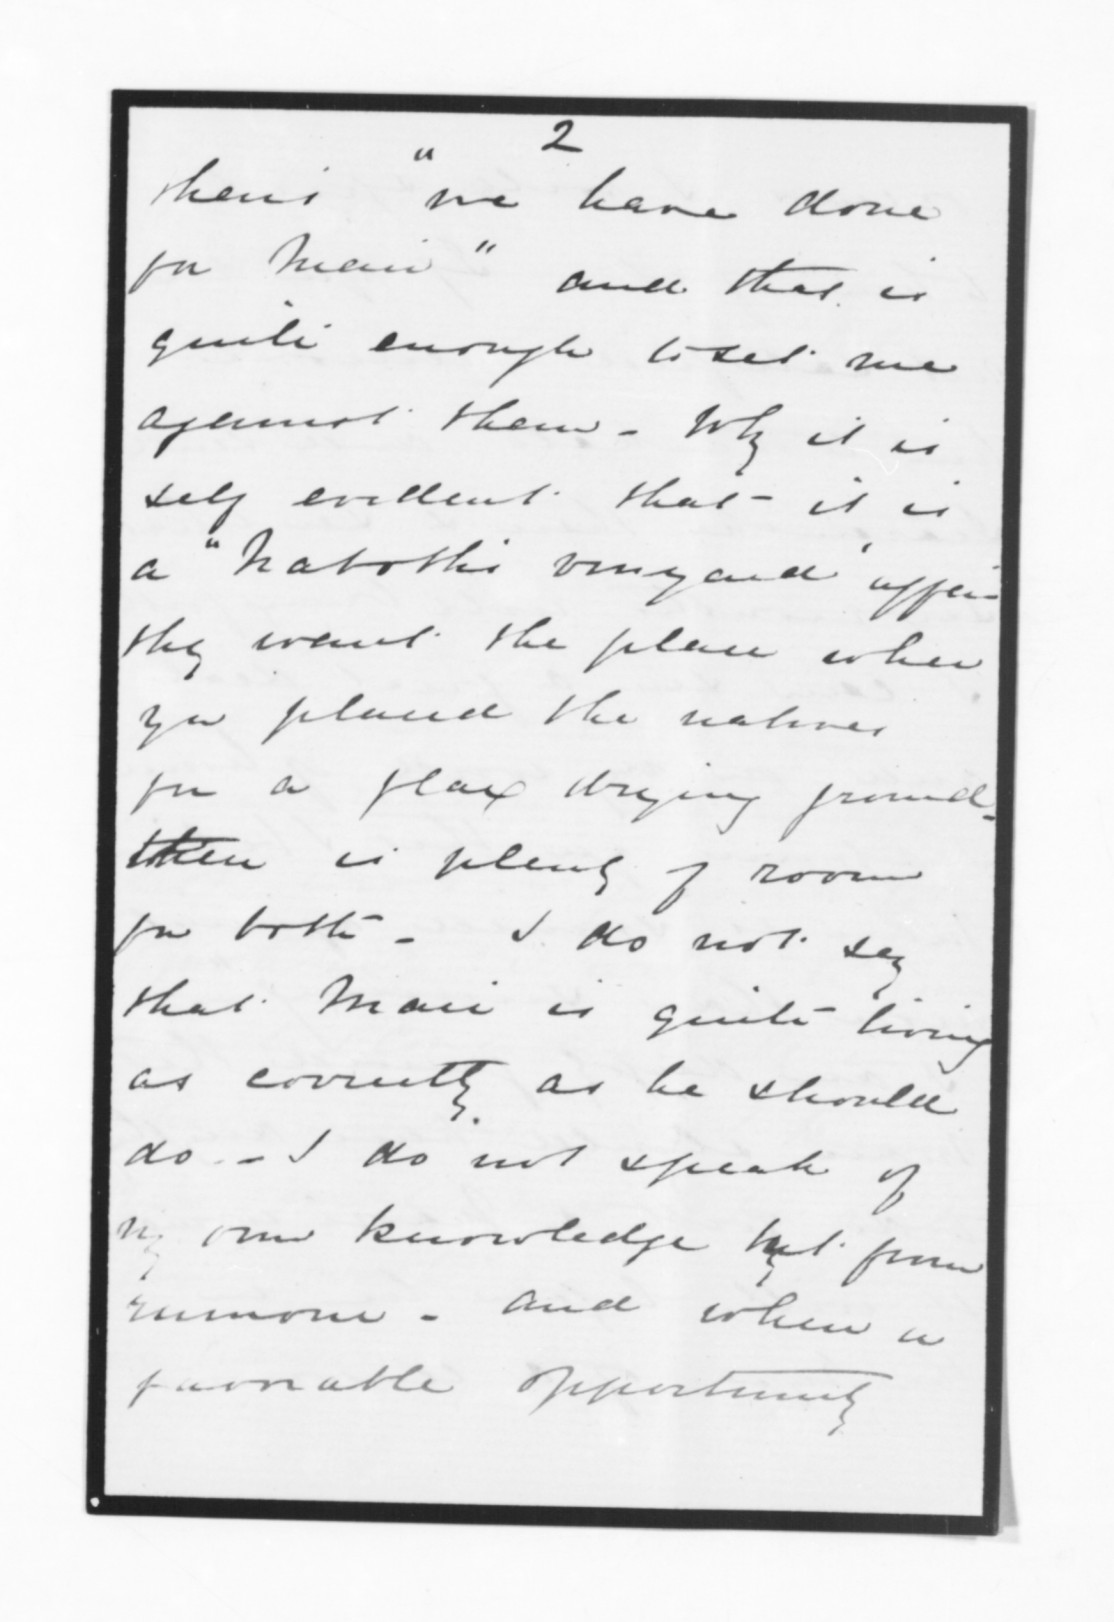 2
theirs "we have done
for Mair" and that is
quite enough to set me
against them - Why it is
self evident that it is
a "Naboths vineyard" affair
they want the place where
you placed the natives
for a flax drying ground -
there is plenty of room
for both - I do not say
that Mair is quite living
as correctly as he should
do. - I do not speak of
my own knowledge but from
rumour - and when a
favorable opportunity